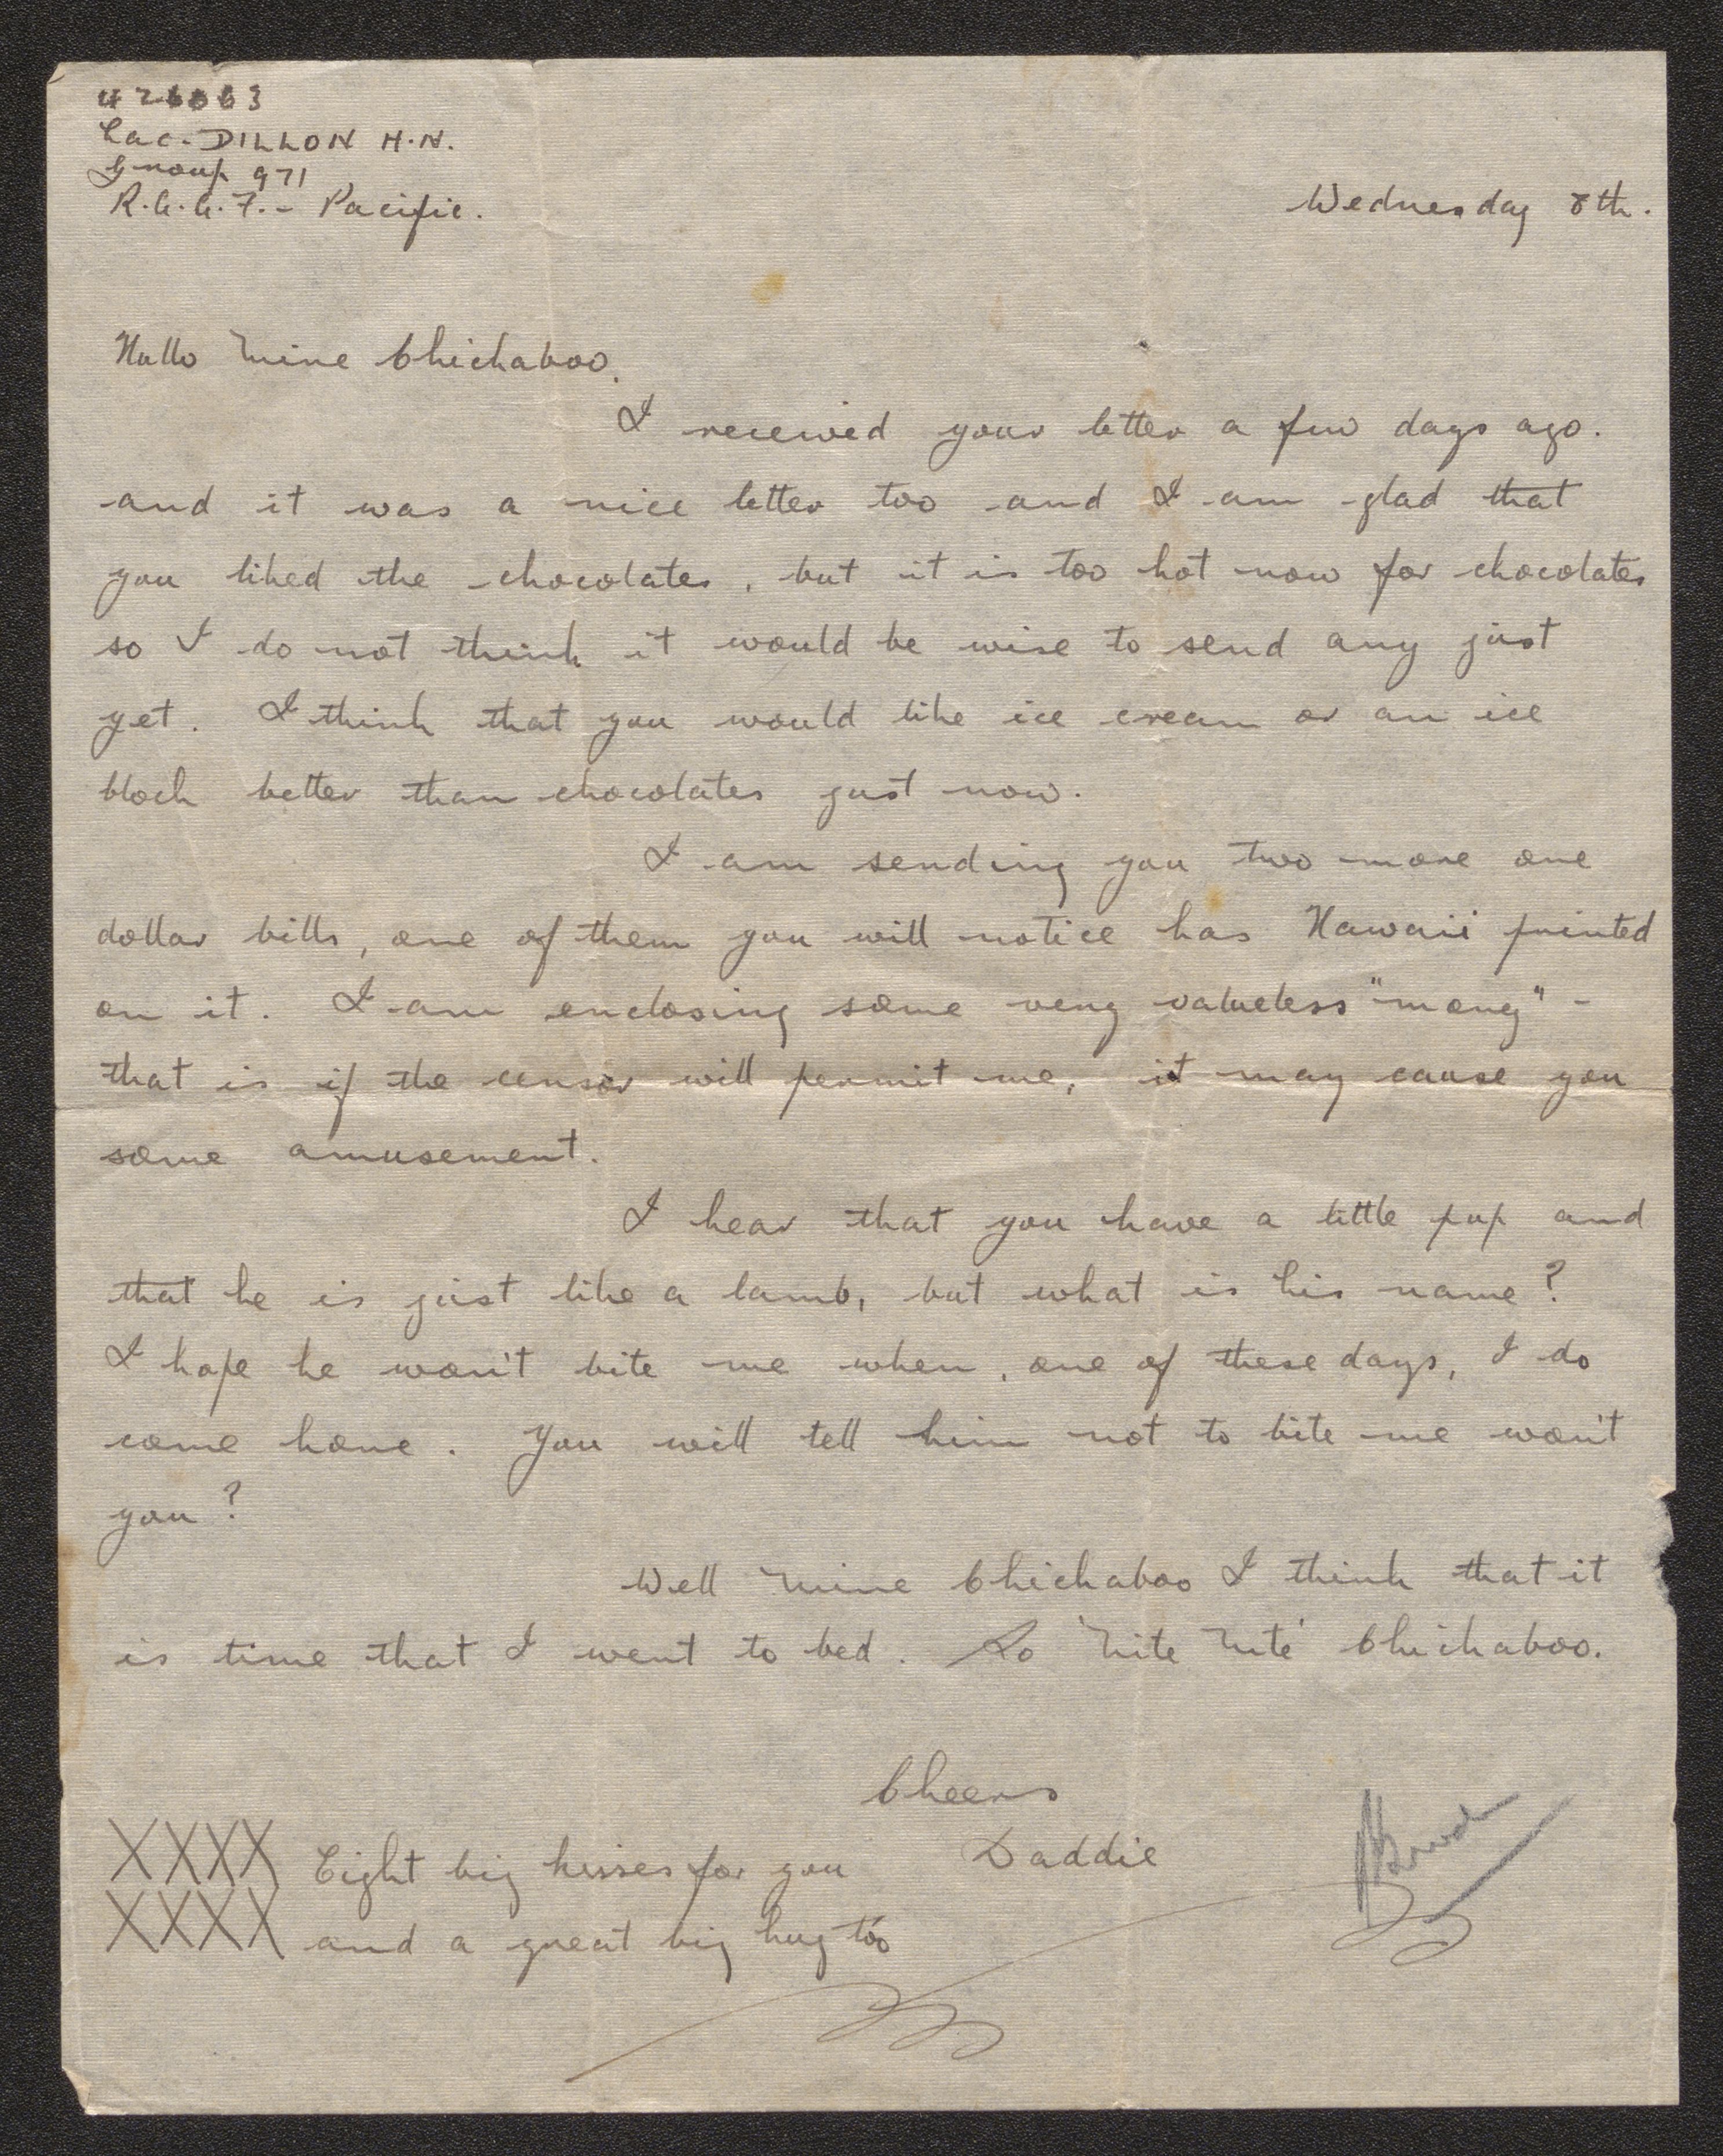 Lac. DILLON H.N.
Group 971
R.A.A.F. - Pacific.
Wednesday 8th.
Hullo Mine Chickaboo.
I received your letter a few days ago.
and it was a nice letter too and I am glad that
you liked the chocolates, but it is too hot now for chocolates
so I do not think it would be wise to send any just
yet. I think that you would like ice cream or an ice
block better than chocolates just now.
I am sending you two more one
dollar bills, one of them you will notice has Hawaii printed
on it. I am enclosing some very valueless "money" -
that is if the censor will permit me, it may cause you
some amusement.
I hear that you have a little pup and
that he is just like a lamb, but what is his name?
I hope he won't bite me when, one of these days, I do
come home. You will tell him not to bite me won't
you?
Well Mine Chickaboo I think that it
is time that I went to bed. So 'Nite Nite' Chickaboo.
Cheers
Daddie
XXXX Eight big kisses for you
XXXX and a great big hug too